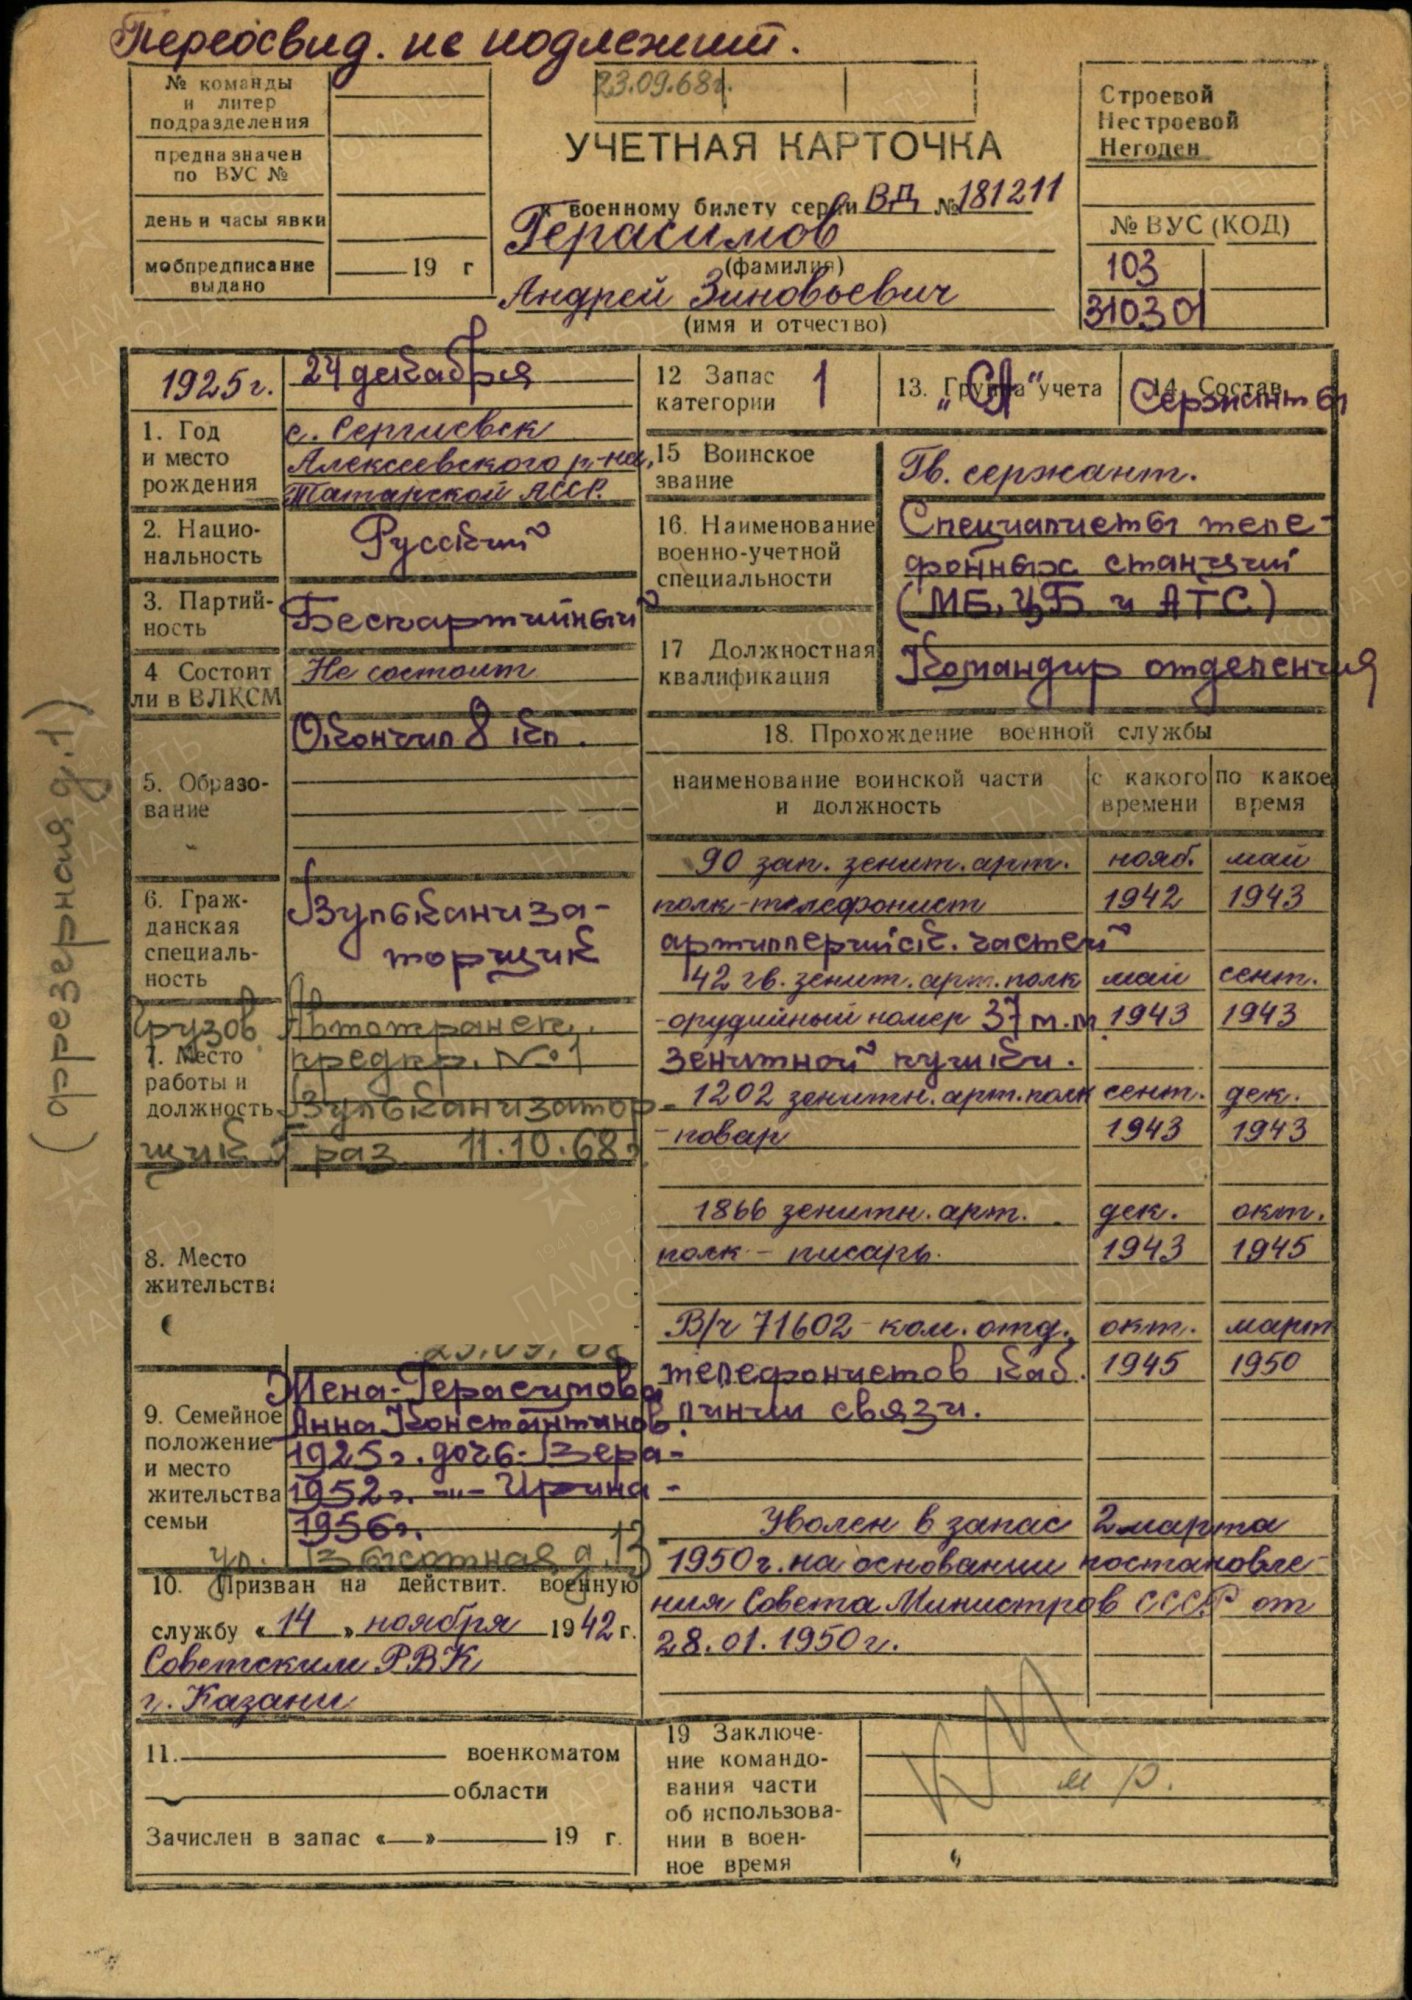 Переосвид. не подлежит.
№ команды
и литер
подразделения
предназначен
по ВУС №
день и часы явки
мобпредписание
выдано
19 г
23.09.68г.
УЧЕТНАЯ КАРТОЧКА
к военному билету серии ВД № 181211
Герасимов
(фамилия)
Андрей Зиновьевич
(имя и отчество)
Строевой
Нестроевой
Негоден
№ ВУС (КОД)
103
310301
1925г.
1. Год
и место
рождения
24 декабря
с. Сергиевск
Алексеевского р-на,
Татарской АССР.
2. Нацио-
нальность
Русский
3. Партий-
ность
Беспартийный
4 Состоит
ли в ВЛКСМ
Не состоит
5. Образо-
вание
Окончил 8 кл.
6. Граж-
данская
специаль-
ность
Вулканиза-
торщик
(фрезерная д.1)
7. Место
работы и
должность
Грузов. Автотрансп.
предпр. №1
Вулканизатор-
щик 5 раз 11.10.68г.
8. Место
жительства
9. Семейное
положение
и место
жительства
семьи
Жена-Герасимова
Анна Константинов.
1925г. дочь-Вера-
1952г. -"- Ирина-
1956г.
ул. Высотная д. 13
10. Призван на действит. военную
службу «14» ноября 1942 г.
Советским РВК
г. Казани
11. военкоматом
области
Зачислен в запас « » 19 г.
12 Запас
категории
1
13. Группа учета
"СА"
14. Состав
Сержанты
15 Воинское
звание
Гв. сержант.
16. Наименование
военно-учетной
специальности
Специалисты теле-
фонных станций
(МБ, ЦБ и АТС)
17 Должностная
квалификация
Командир отделения
18. Прохождение военной службы
наименование воинской части
и должность
с какого
времени
по какое
время
90 зап. зенит. арт. нояб. май
полк-телефонист 1942 1943
артиллерийск. частей
42 гв. зенит. арт. полк май сент.
-орудийный номер 37 м.м 1943 1943
зенитной пушки.
1202 зенитн. арт. полк сент. дек.
-повар 1943 1943
1866 зенитн. арт. дек. окт.
полк - писарь. 1943 1945
В/ч 71602 - ком. отд. окт. март
телефонистов каб. 1945 1950
линии связи.
Уволен в запас 2 марта
1950г. на основании постановле-
ния Совета Министров СССР от
28.01.1950г.
19 Заключе-
ние командо-
вания части
об использова-
нии в воен-
ное время
м р.